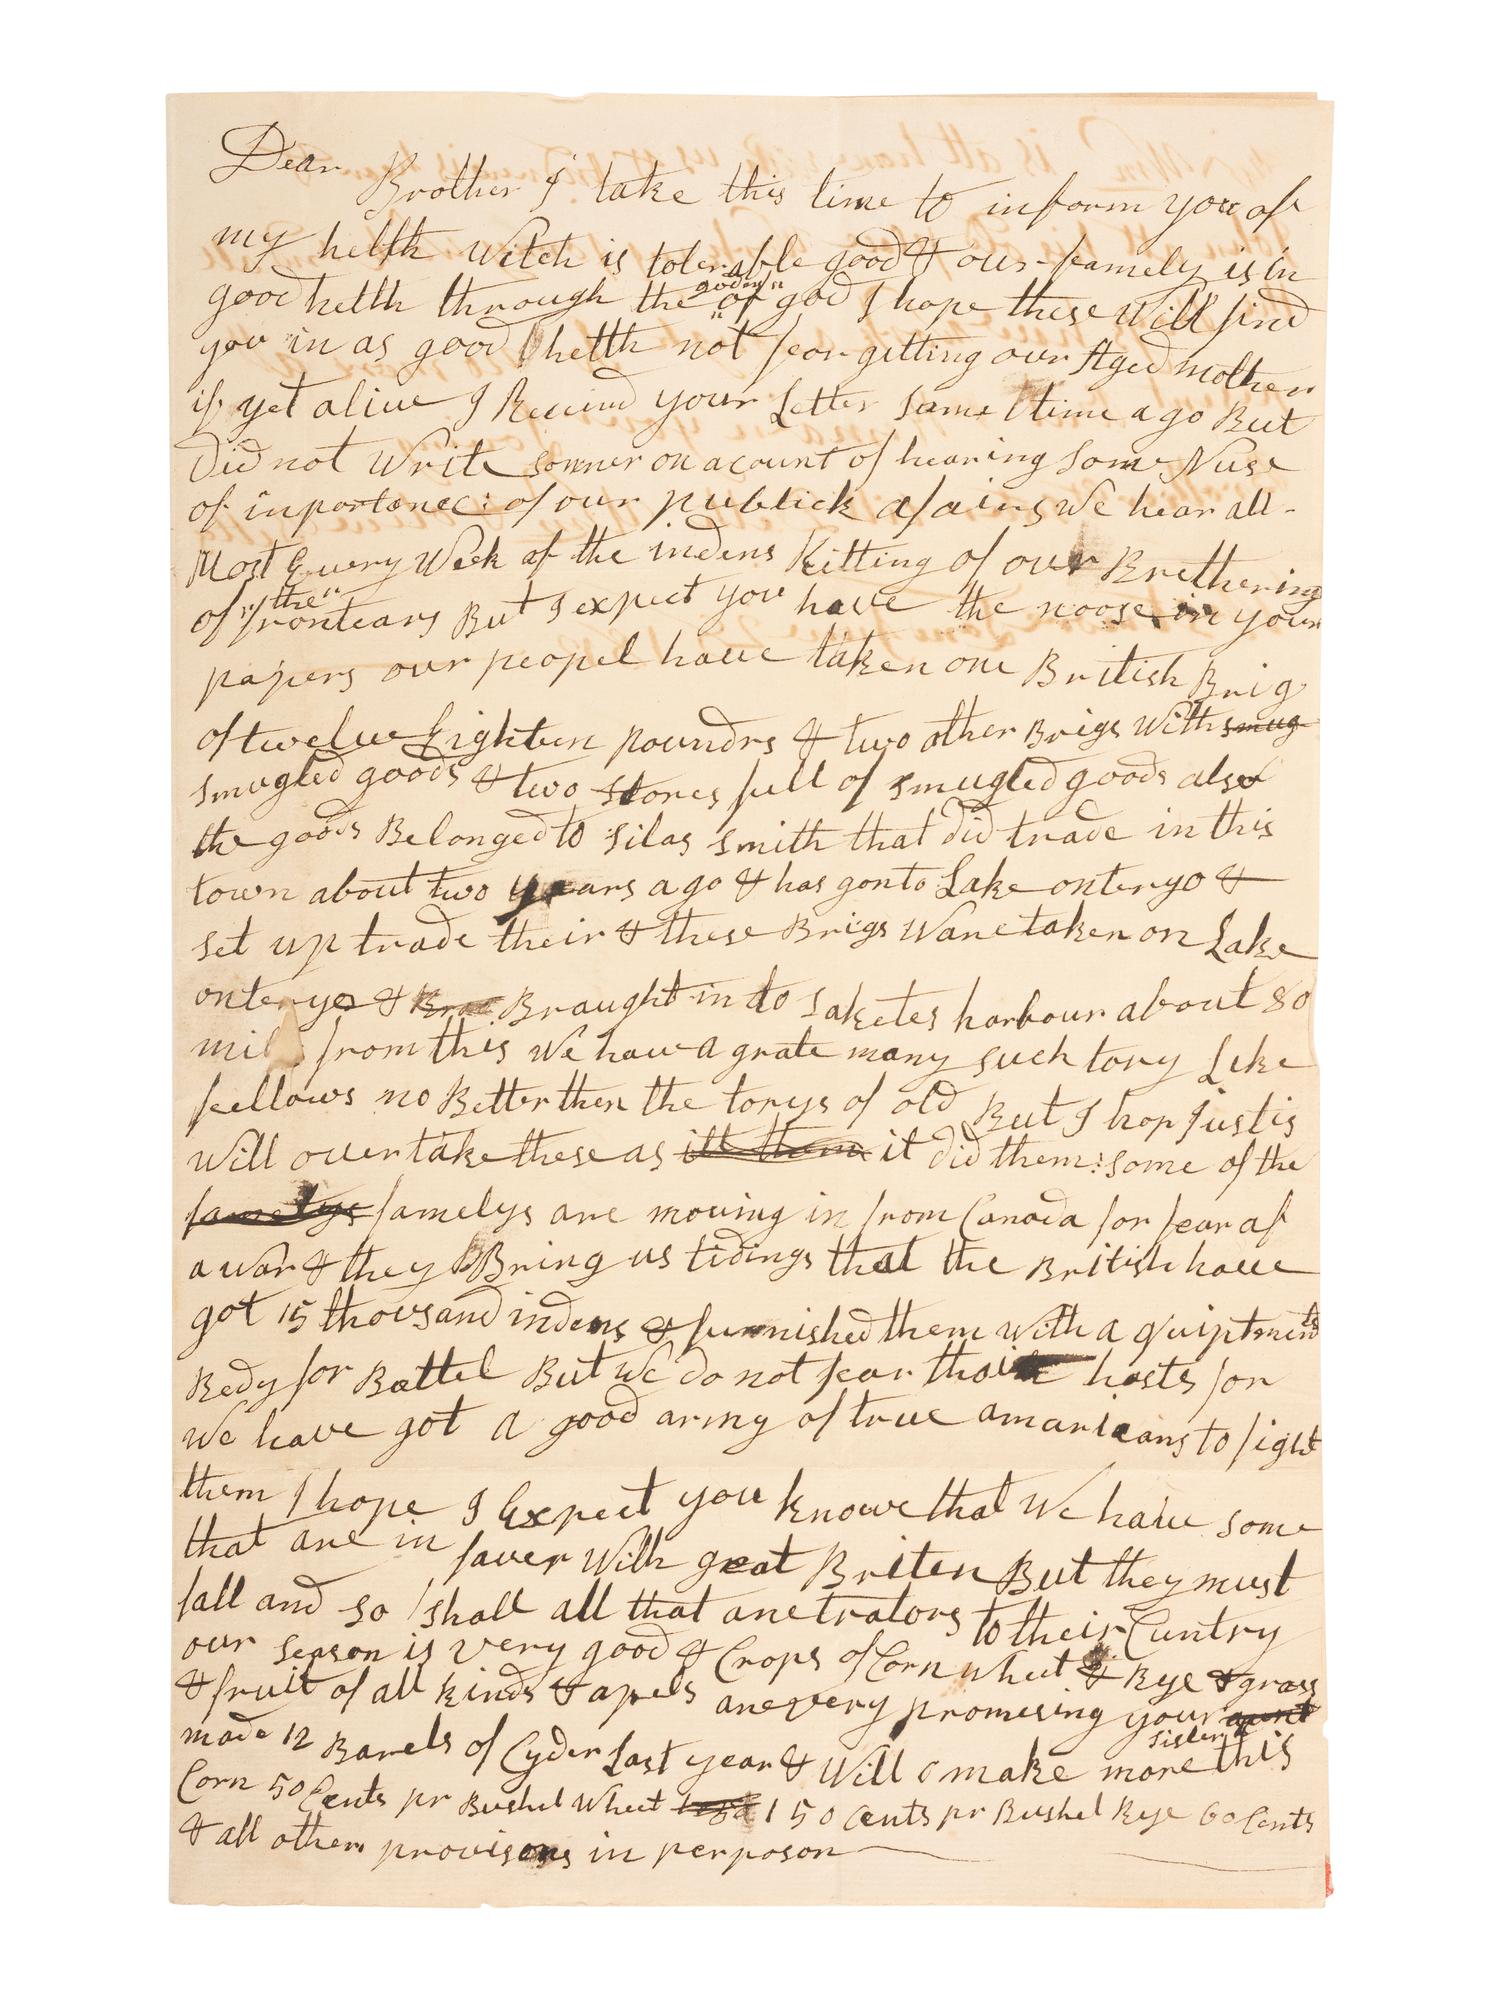 Dear
Brother I take this time to inform you of
my helth Witch is tolerable good & our famely is in
good helth through the goodns of god I hope these Will find
you in as good helth not forgitting our Aged mother
if yet alive I Receivd your Letter Some time ago But
Did not Write sonner on acount of hearing Some Nuse
of inportance: of our publick afairs We hear all-
Most Every Week of the indens Killing of our Brethering
of the frontears But I expect you have the noose in your
papers our peopel have taken one British Brig
of twelve Eighteen poundrs & two other Brigs With smug
smugled goods & two stores full of smugled goods also
the goods Belonged to Silas Smith that did trade in this
town about two years ago & has gon to Lake onteryo &
set up trade their & these Brigs Ware taken on Lake
onteryo & Braught in to Saketes harbour about 80
mil from this We have a grate many such tory Like
fellows no Better then the torys of old But I hop justis
Will overtake these as it did them: some of the
famelys famelys are moving in from Canada for fear of
a war & they Bring us tidings that the British have
got 15 thousand indens & furnished them With a quiptments
Redy for Battel But We do not fear thair hosts for
We have got a good army of true amaricans to fight
them I hope I Expect you know that We have some
that are in faver With great Briten But they must
fall and so shall all that are trators to their Cuntry
our season is very good & Crops of Corn wheet & Rye & grass
& fruit of all kinds & apels are very promising your aunt
sister
made 12 Barels of Cyder Last year & Will make more this
Corn 50 Cents pr Bushel Wheet 150 Cents pr Bushel Rye 60 Cents
& all other provisons in perposon